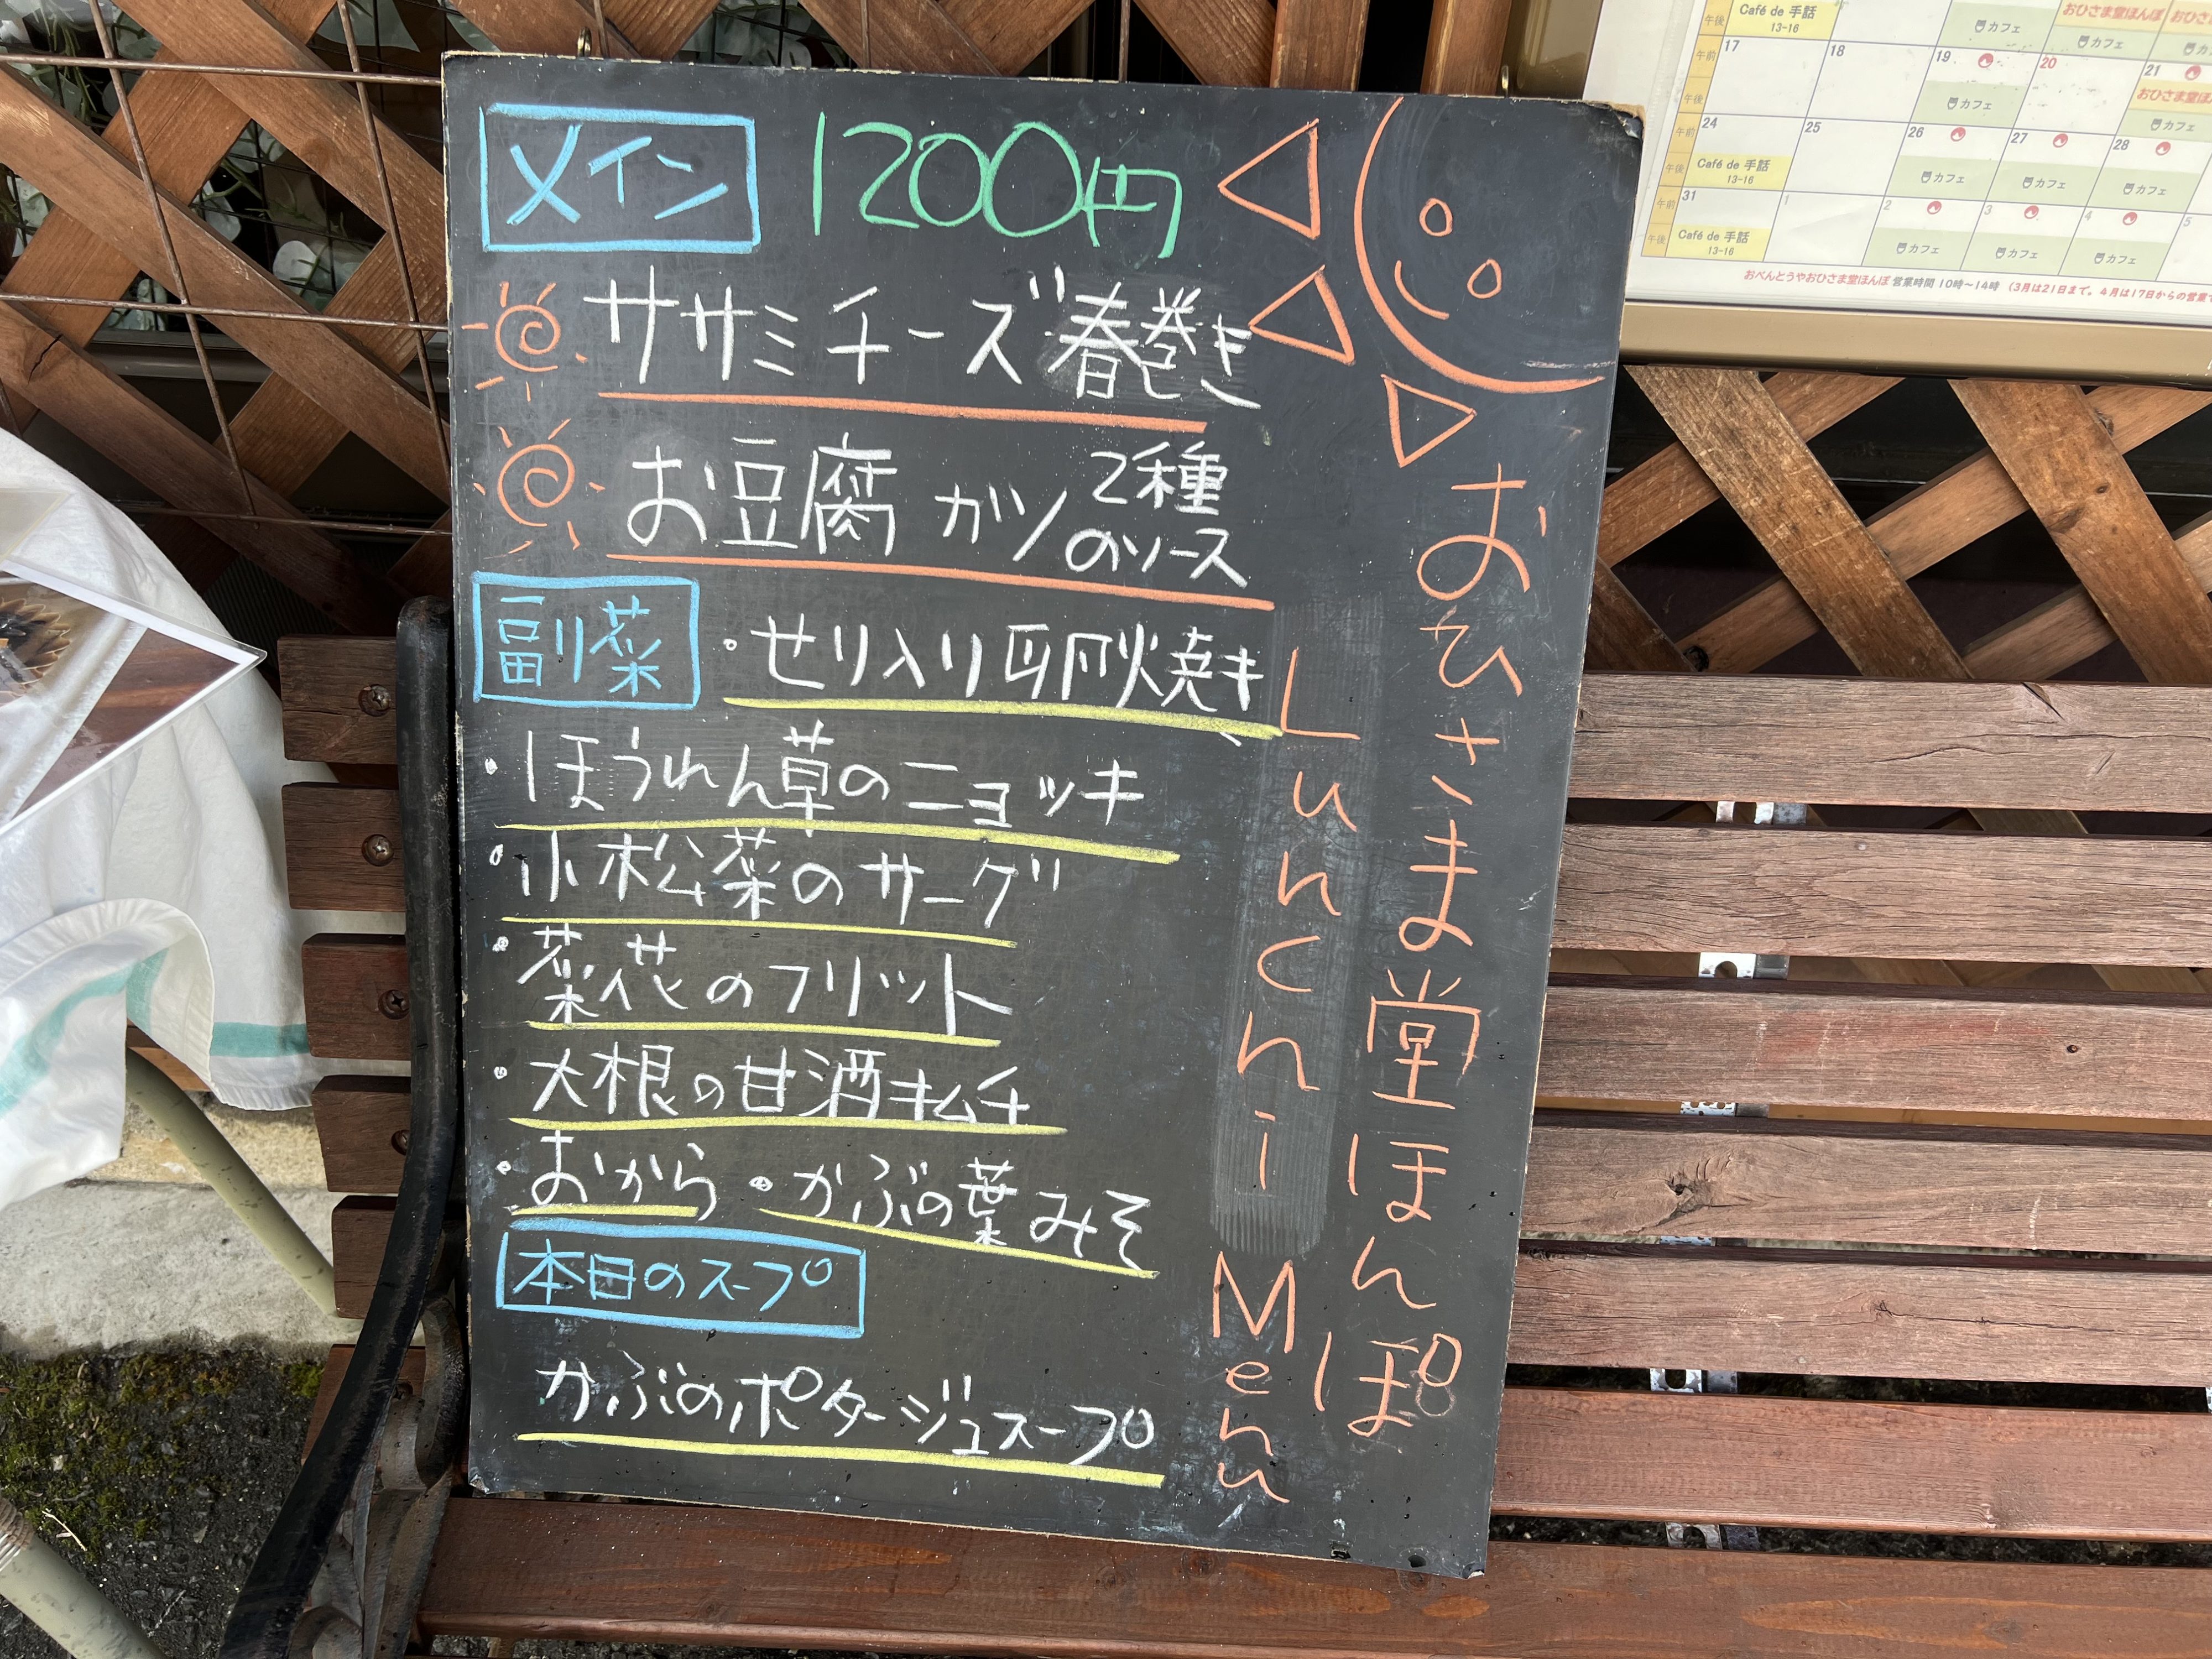 メイン 1200円
ササミチーズ春巻き
お豆腐カツ 2種
のソース
副菜 ・せり入り卵焼き
・ほうれん草のニョッキ
・小松菜のサーグ
・菜花のフリット
・大根の甘酒キムチ
・おから ・かぶの葉みそ
本日のスープ
かぶのポタージュスープ
おひさま堂ほんぽ
Lunchi Menu
午後 Café de 手話 カフェ おひさま堂ほんぽ カフェ
13-16
午前 17 18 19 20 21
午後 カフェ おひさま堂ほん
カフェ
午前 24 25 26 27 28
午後 Café de 手話 カフェ カフェ カフェ
13-16
午前 31 1 2 3 4 5
午後 Café de 手話 カフェ カフェ カフェ
13-16
おべんとうやおひさま堂ほんぽ 営業時間 10時～14時 （3月は21日まで。4月は17日からの営業